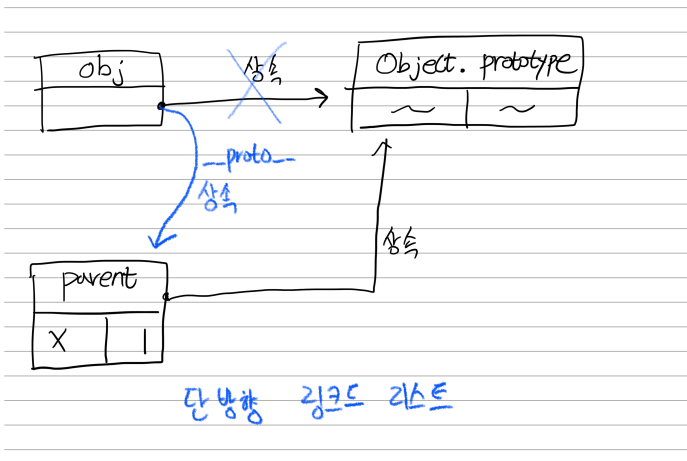 obj
상속
Object. prototype
~ ~
__proto__
상속
상속
parent
x 1
단방향 링크드 리스트